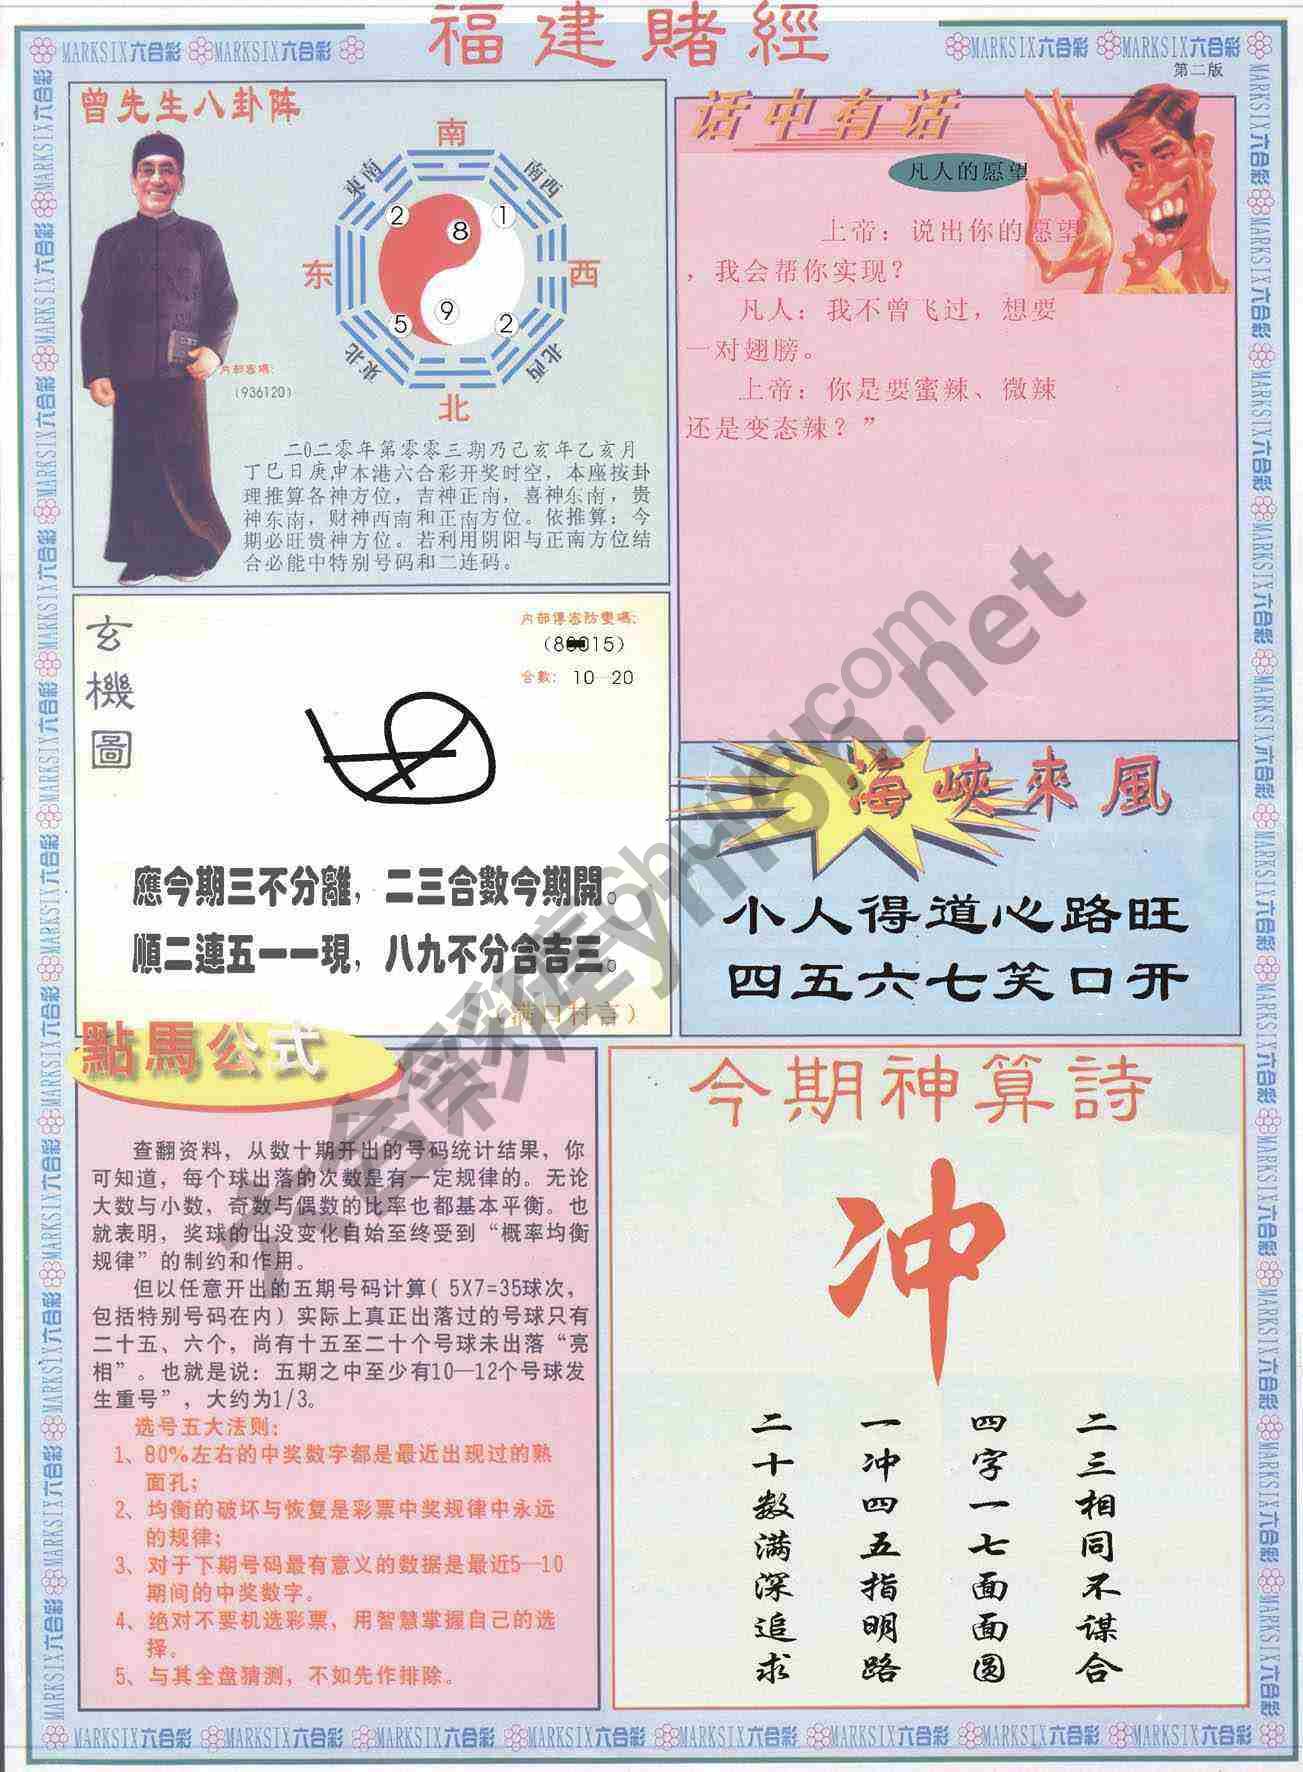 福建賭經
MARKSIX六合彩 MARKSIX六合彩
MARKSIX六合彩 MARKSIX六合彩
第二版
曾先生八卦阵
南
東南
南西
2
8
1
东
西
5
9
2
東北
北西
北
内部密碼:
(936120)
二0二零年第零零三期乃己亥年乙亥月
丁巳日庚冲本港六合彩开奖时空，本座按卦
理推算各神方位，吉神正南，喜神东南，贵
神东南，财神西南和正南方位。依推算：今
期必旺贵神方位。若利用阴阳与正南方位结
合必能中特别号码和二连码。
话中有话
凡人的愿望
上帝：说出你的愿望
，我会帮你实现？
凡人：我不曾飞过，想要
一对翅膀。
上帝：你是要蜜辣、微辣
还是变态辣？”
玄機圖
内部傳密防變碼:
合數: 10—20
應今期三不分離，二三合數今期開。
順二連五一一現，八九不分合吉三。
(满口村言)
海峽來風
小人得道心路旺
四五六七笑口开
點馬公式
查翻资料，从数十期开出的号码统计结果，你
可知道，每个球出落的次数是有一定规律的。无论
大数与小数，奇数与偶数的比率也都基本平衡。也
就表明，奖球的出没变化自始至终受到“概率均衡
规律”的制约和作用。
但以任意开出的五期号码计算( 5X7=35球次，
包括特别号码在内) 实际上真正出落过的号球只有
二十五、六个，尚有十五至二十个号球未出落“亮
相”。也就是说：五期之中至少有10—12个号球发
生重号”，大约为1/3。
选号五大法则:
1、80%左右的中奖数字都是最近出现过的熟
面孔;
2、均衡的破坏与恢复是彩票中奖规律中永远
的规律;
3、对于下期号码最有意义的数据是最近5—10
期间的中奖数字。
4、绝对不要机选彩票，用智慧掌握自己的选
择。
5、与其全盘猜测，不如先作排除。
今期神算詩
冲
二三相同不谋合
四字一七面面圆
一冲四五指明路
二十数满深追求
MARKSIX六合彩 MARKSIX六合彩 MARKSIX六合彩 MARKSIX六合彩 MARKSIX六合彩 MARKSIX六合彩 MARKSIX六合彩 MARKSIX六合彩